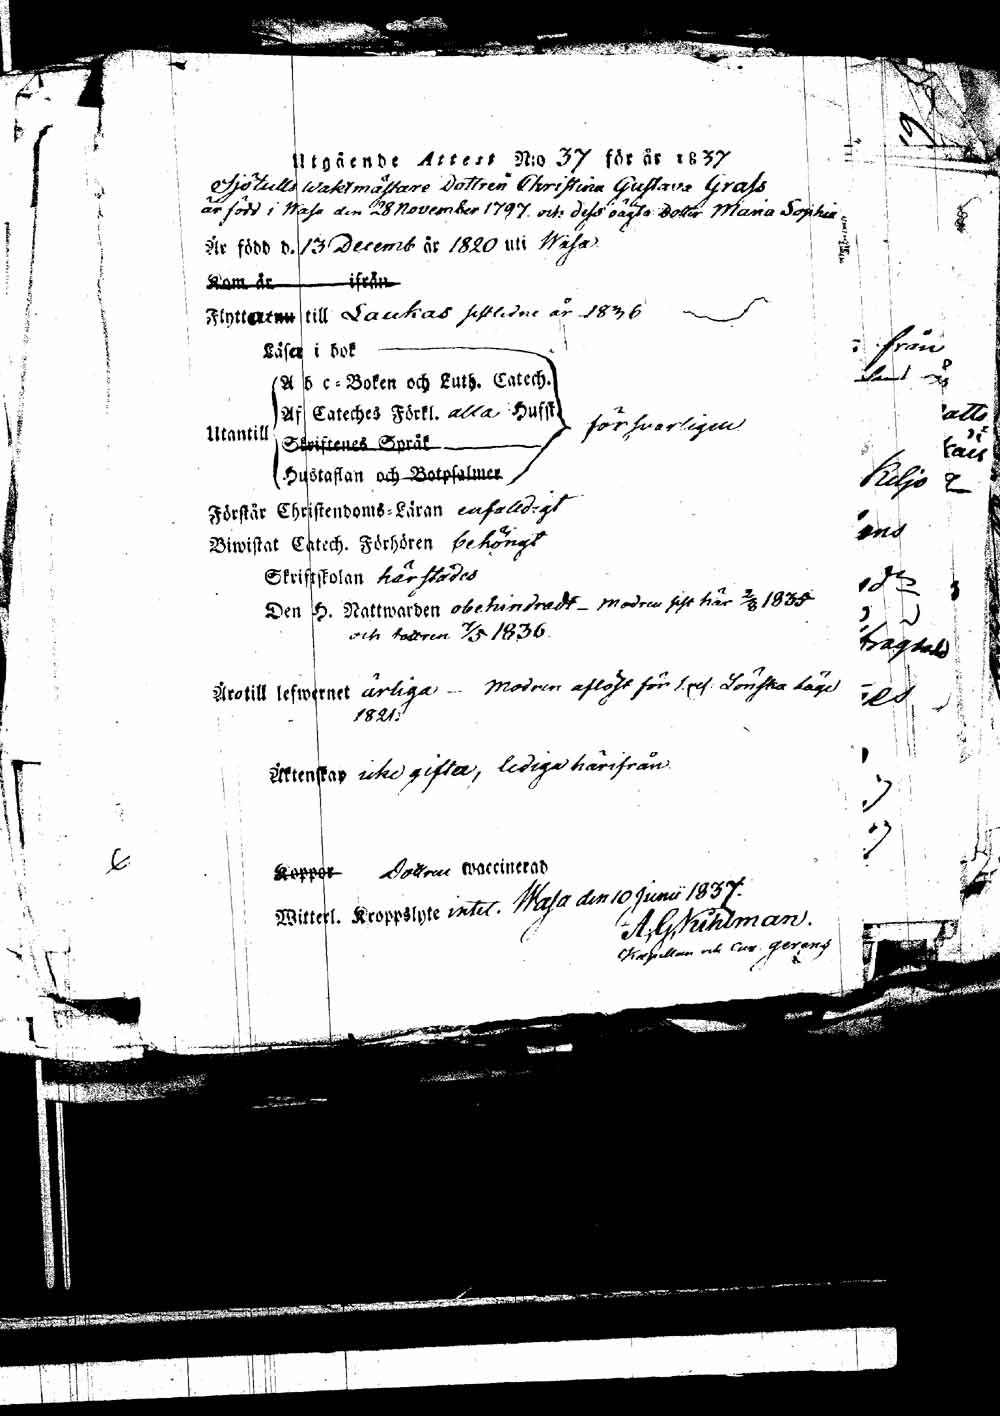 19
Utgående Attest N:o 37 för år 1837
Sjötulls waktmästare Dottren Christina Gustava Grass
är född i Wasa den 28 November 1797. och dess oägta Dotter Maria Sophia
Är född d. 13 Decemb år 1820 uti Wasa
Kom år ifrån
Flytt till Laukas sistledne år 1836
Läser i bok
A b c-Boken och Luth. Catech.
Af Cateches Förkl. alla Hufst
Utantill
försvarligen
Skriftenes Språk
Hustaflan och Botpsalmer
Förstår Christendoms-Läran enfaldigt
Biwistat Catech. Förhören behörigt
Skriftskolan härstädes
Den H. Nattwarden obehindradt – Modren sist här 2/8 1835
och dottren 7/5 1836
Är till lefwernet ärliga – Modren aflöst för läge
1821.
Äktenskap icke gifta, lediga härifrån.
Koppor Dottren waccinerad
Witterl. Kroppslyte intet. Wasa den 10 Junii 1837.
A. G. Kihlman.
Kapellan och Cur. gerens
från
Keljo